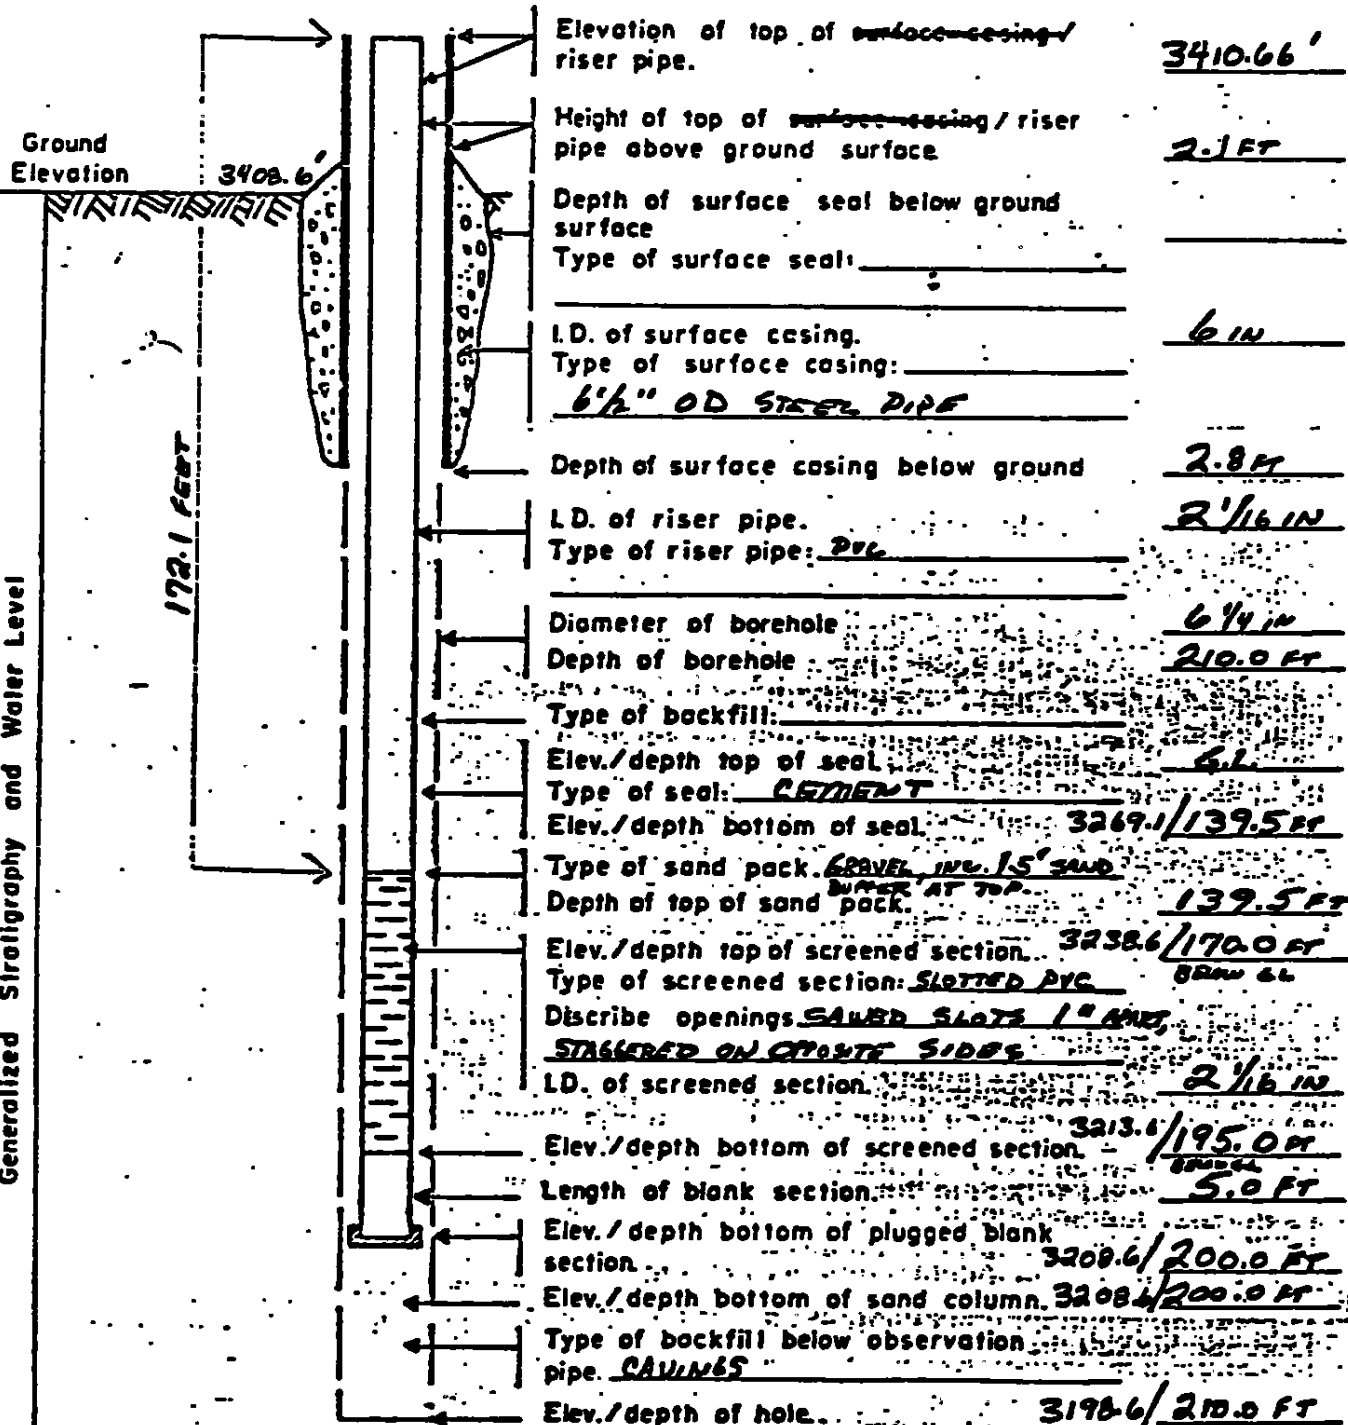 Elevation of top of surface casing /
riser pipe. 3410.66'
Height of top of surface casing / riser
pipe above ground surface 2.1 FT
Ground
Elevation 3408.6'
Depth of surface seal below ground
surface
Type of surface seal:
I.D. of surface casing. 6 IN
Type of surface casing:
6 1/2" OD STEEL PIPE
Depth of surface casing below ground 2.8 FT
I.D. of riser pipe. 2 1/16 IN
Type of riser pipe: PVC
172.1 FEET
Generalized Stratigraphy and Water Level
Diameter of borehole 6 1/4 IN
Depth of borehole 210.0 FT
Type of backfill:
Elev./depth top of seal. G.L.
Type of seal: CEMENT
Elev./depth bottom of seal. 3269.1/139.5 FT
Type of sand pack. GRAVEL, INC. 1.5' SAND
BUFFER AT TOP.
Depth of top of sand pack. 139.5 FT
Elev./depth top of screened section. 3238.6/170.0 FT
BELOW GL
Type of screened section: SLOTTED PVC
Discribe openings. SAWED SLOTS 1" APART,
STAGGERED ON OPPOSITE SIDES
I.D. of screened section. 2 1/16 IN
Elev./depth bottom of screened section. 3213.6/195.0 FT
BELOW GL
Length of blank section. 5.0 FT
Elev./depth bottom of plugged blank
section. 3208.6/200.0 FT
Elev./depth bottom of sand column. 3208.6/200.0 FT
Type of backfill below observation
pipe. CAVINGS
Elev./depth of hole. 3198.6/210.0 FT